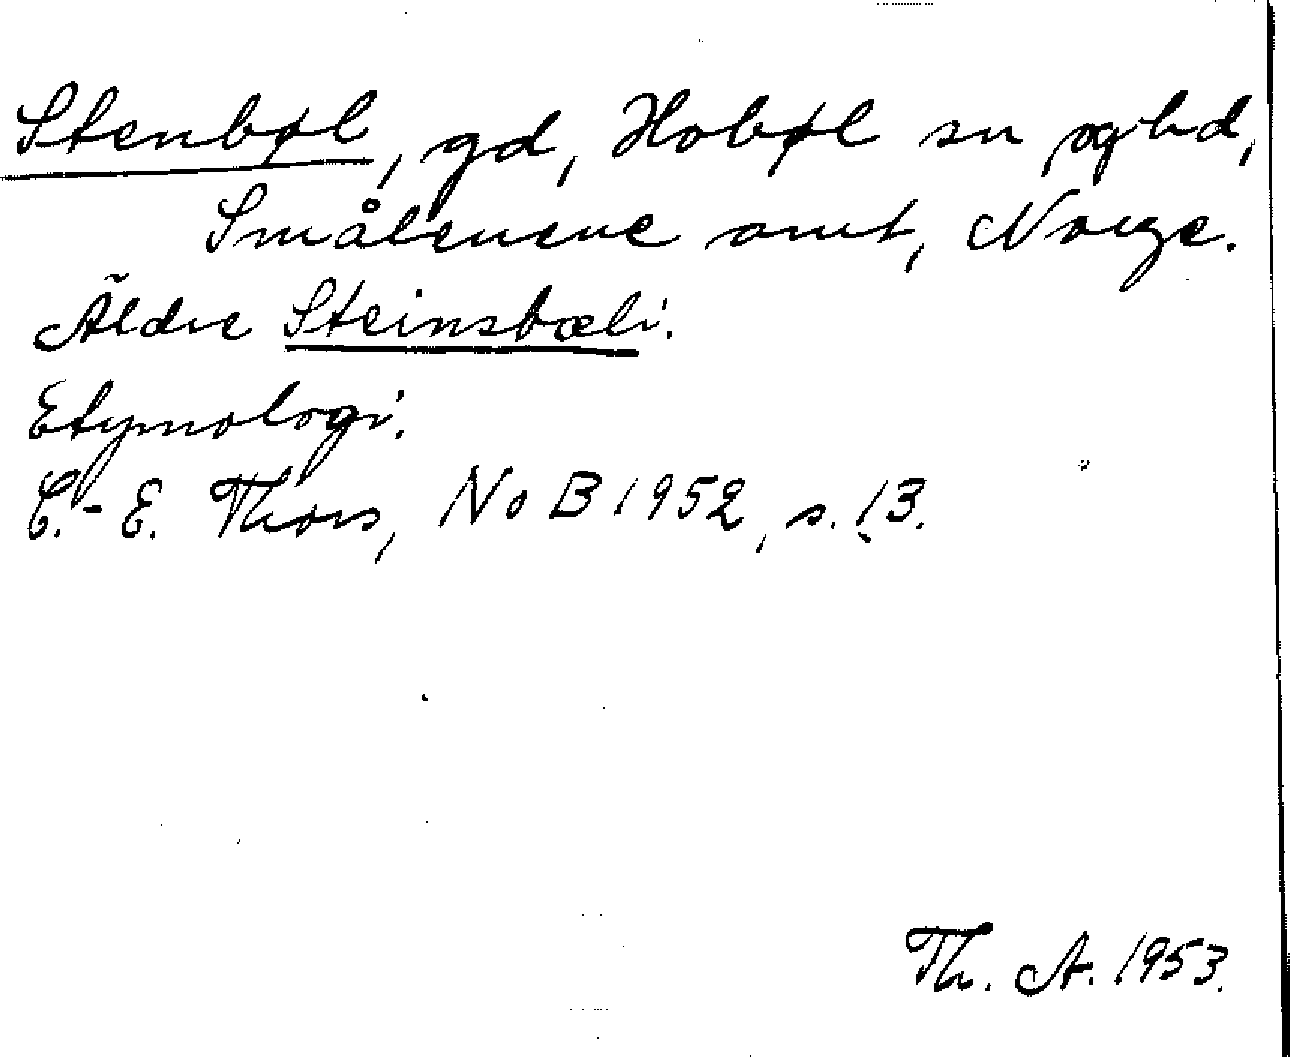 Stenbøl, gd, Hobøl sn og hd,
Smålenene amt, Norge.
Äldre Steinsbœli.
Etymologi.
C.-E. Thors, NoB 1952, s. 13.
Th. A. 1953.